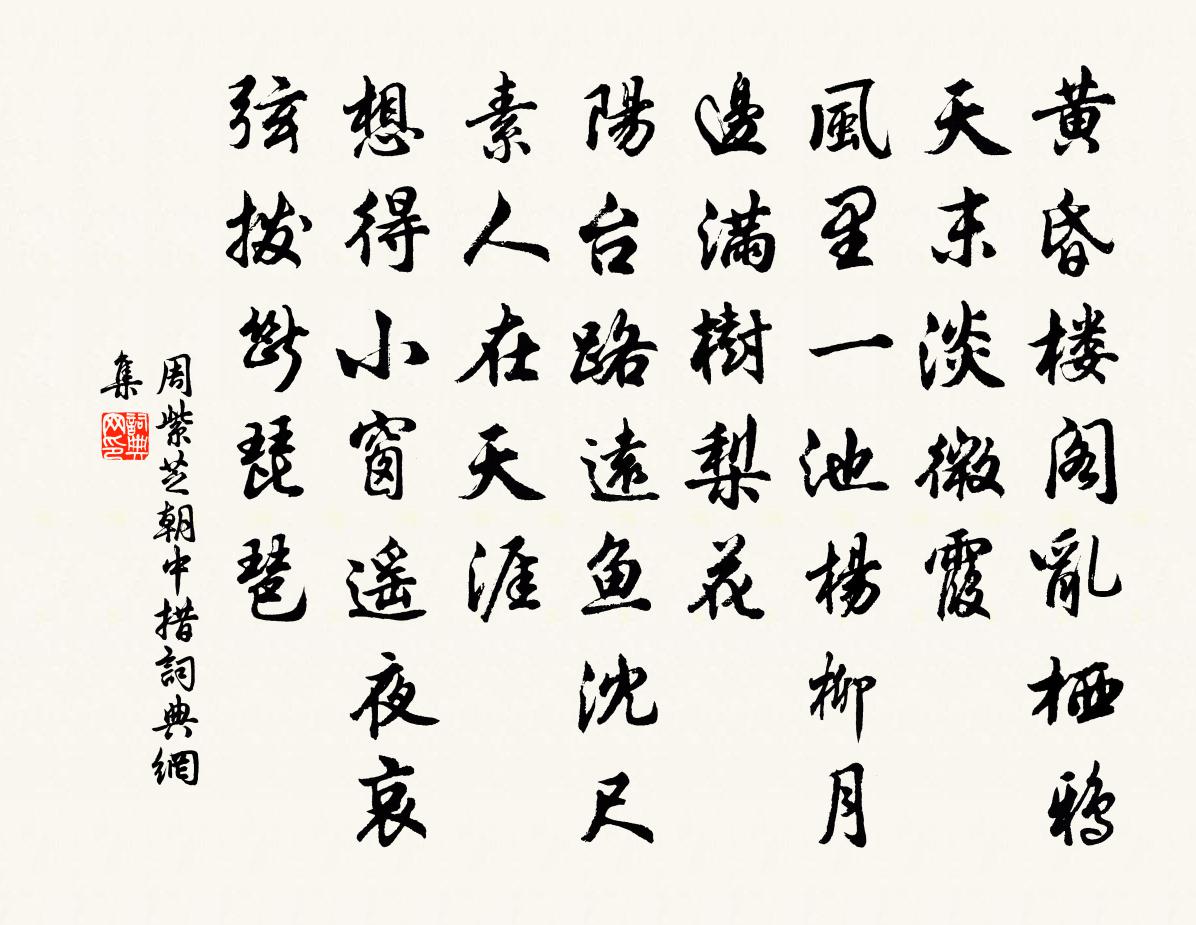 黄昏楼阁亂栖鴉
天末淡微霞
風里一池楊柳月
邊滿樹梨花
陽台路遠魚沈尺
素人在天涯
想得小窗遥夜哀
弦拨斷琵琶
周紫芝朝中措詞典網
集
詞典
网印